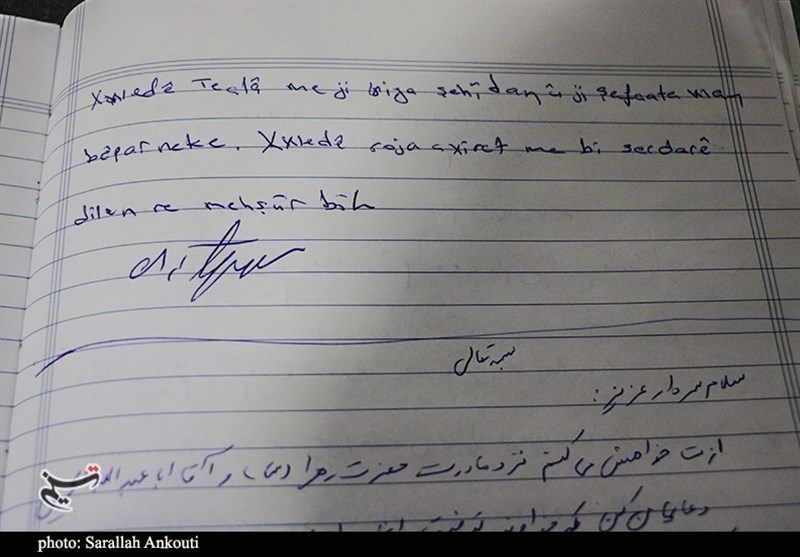 Xwedê Teala me ji riya şehîdan û ji şefaata wan
bêpar neke. Xwedê roja axiret me bi serdarê
dilan re mehşûr bik
بسمه تعالی
سلام سردار عزیز:
ازت خواهش می کنم نزد مادرت حضرت زهرا (س) و آقا اباعبدالله
دعامون کن که خداوند
تسنیم
photo: Sarallah Ankouti